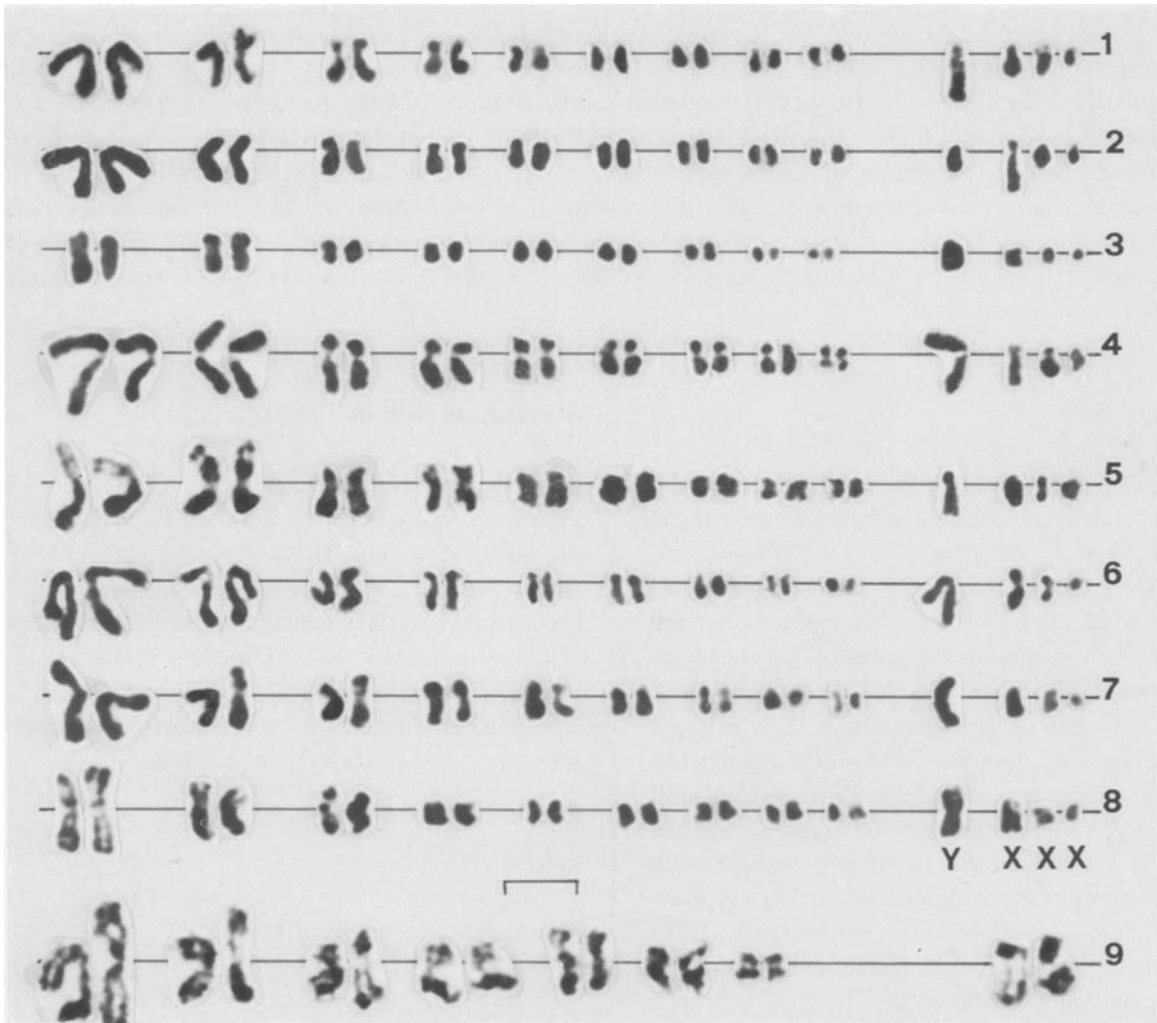 1
2
3
4
5
6
7
8
Y X X X
9